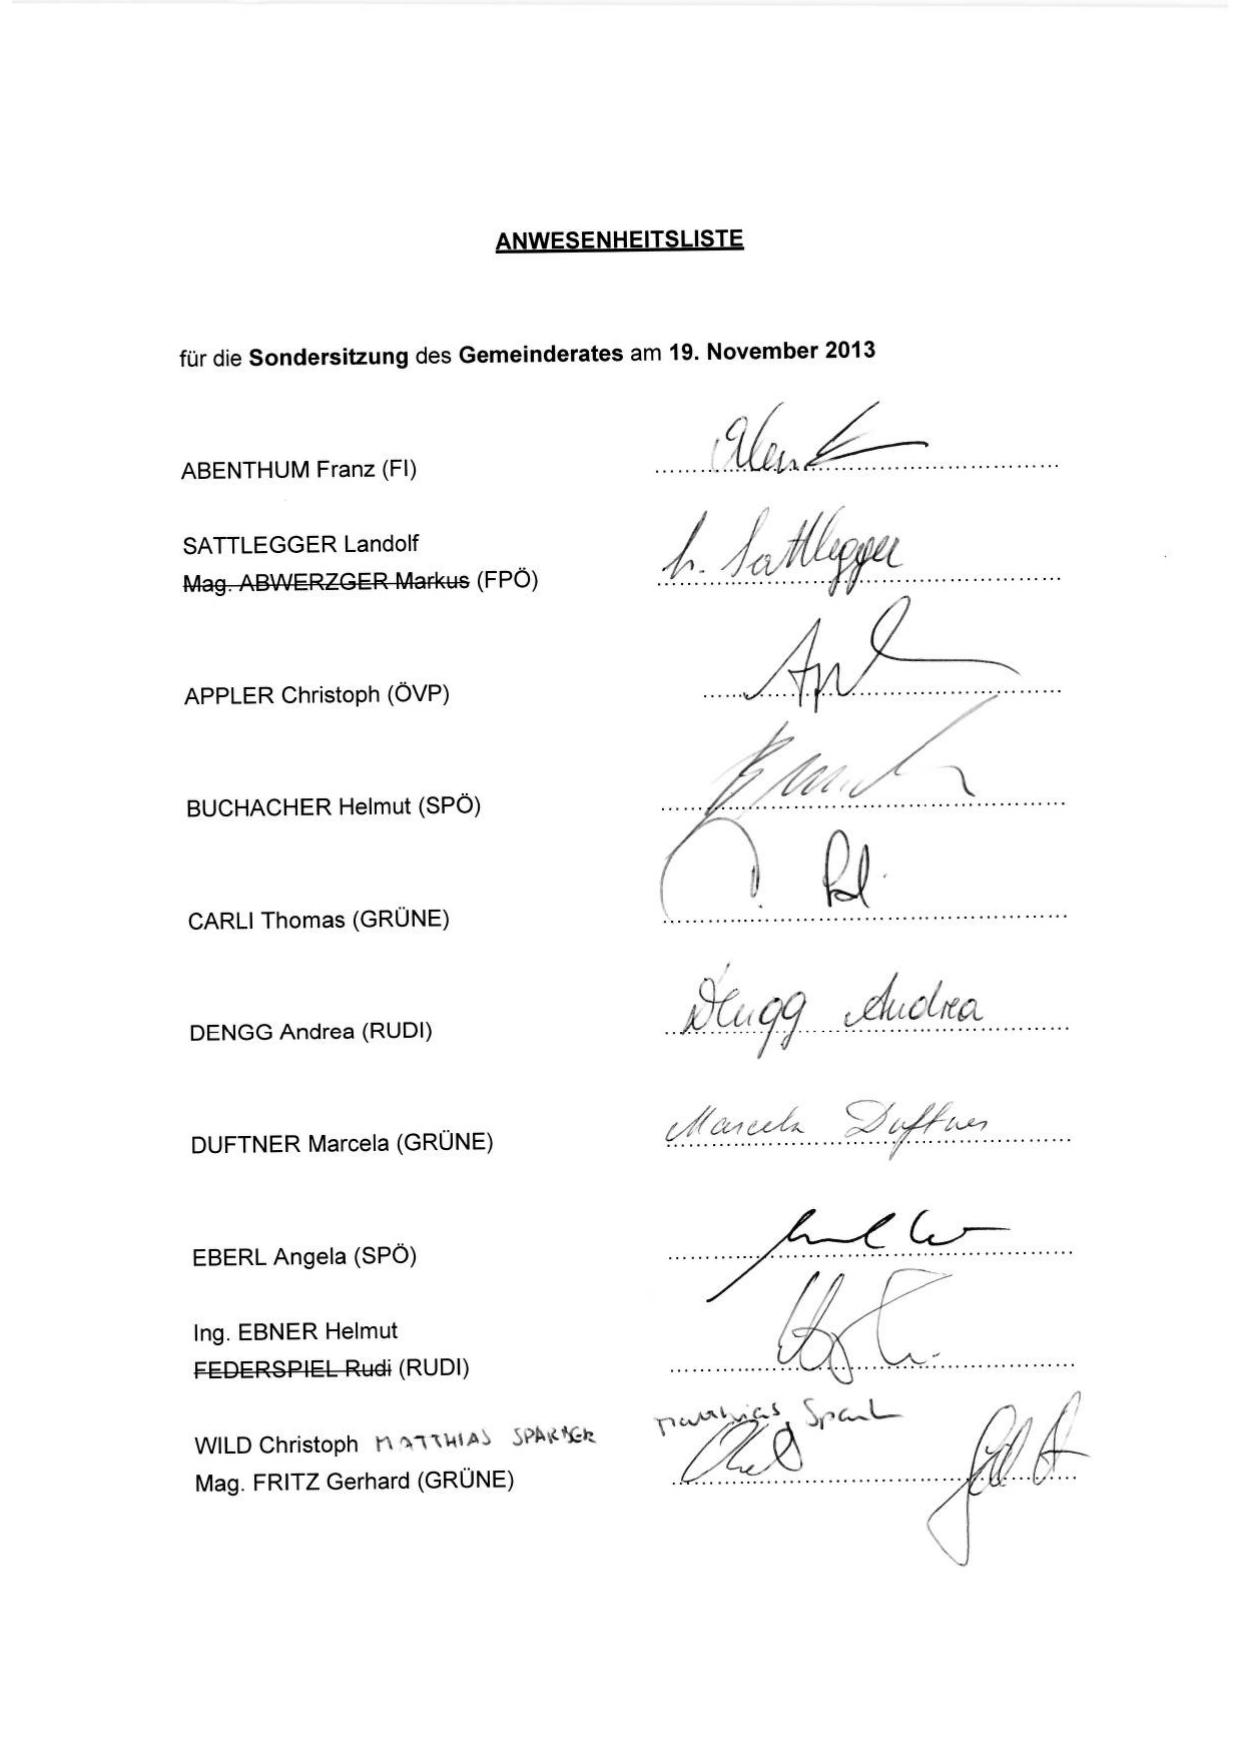 ANWESENHEITSLISTE
für die Sondersitzung des Gemeinderates am 19. November 2013
ABENTHUM Franz (FI)
SATTLEGGER Landolf
L. Sattlegger
Mag. ABWERZGER Markus (FPÖ)
APPLER Christoph (ÖVP)
BUCHACHER Helmut (SPÖ)
CARLI Thomas (GRÜNE)
DENGG Andrea (RUDI)
Dengg Andrea
DUFTNER Marcela (GRÜNE)
Marcela Duftner
EBERL Angela (SPÖ)
Ing. EBNER Helmut
FEDERSPIEL Rudi (RUDI)
WILD Christoph MATTHIAS
Matthias
Mag. FRITZ Gerhard (GRÜNE)